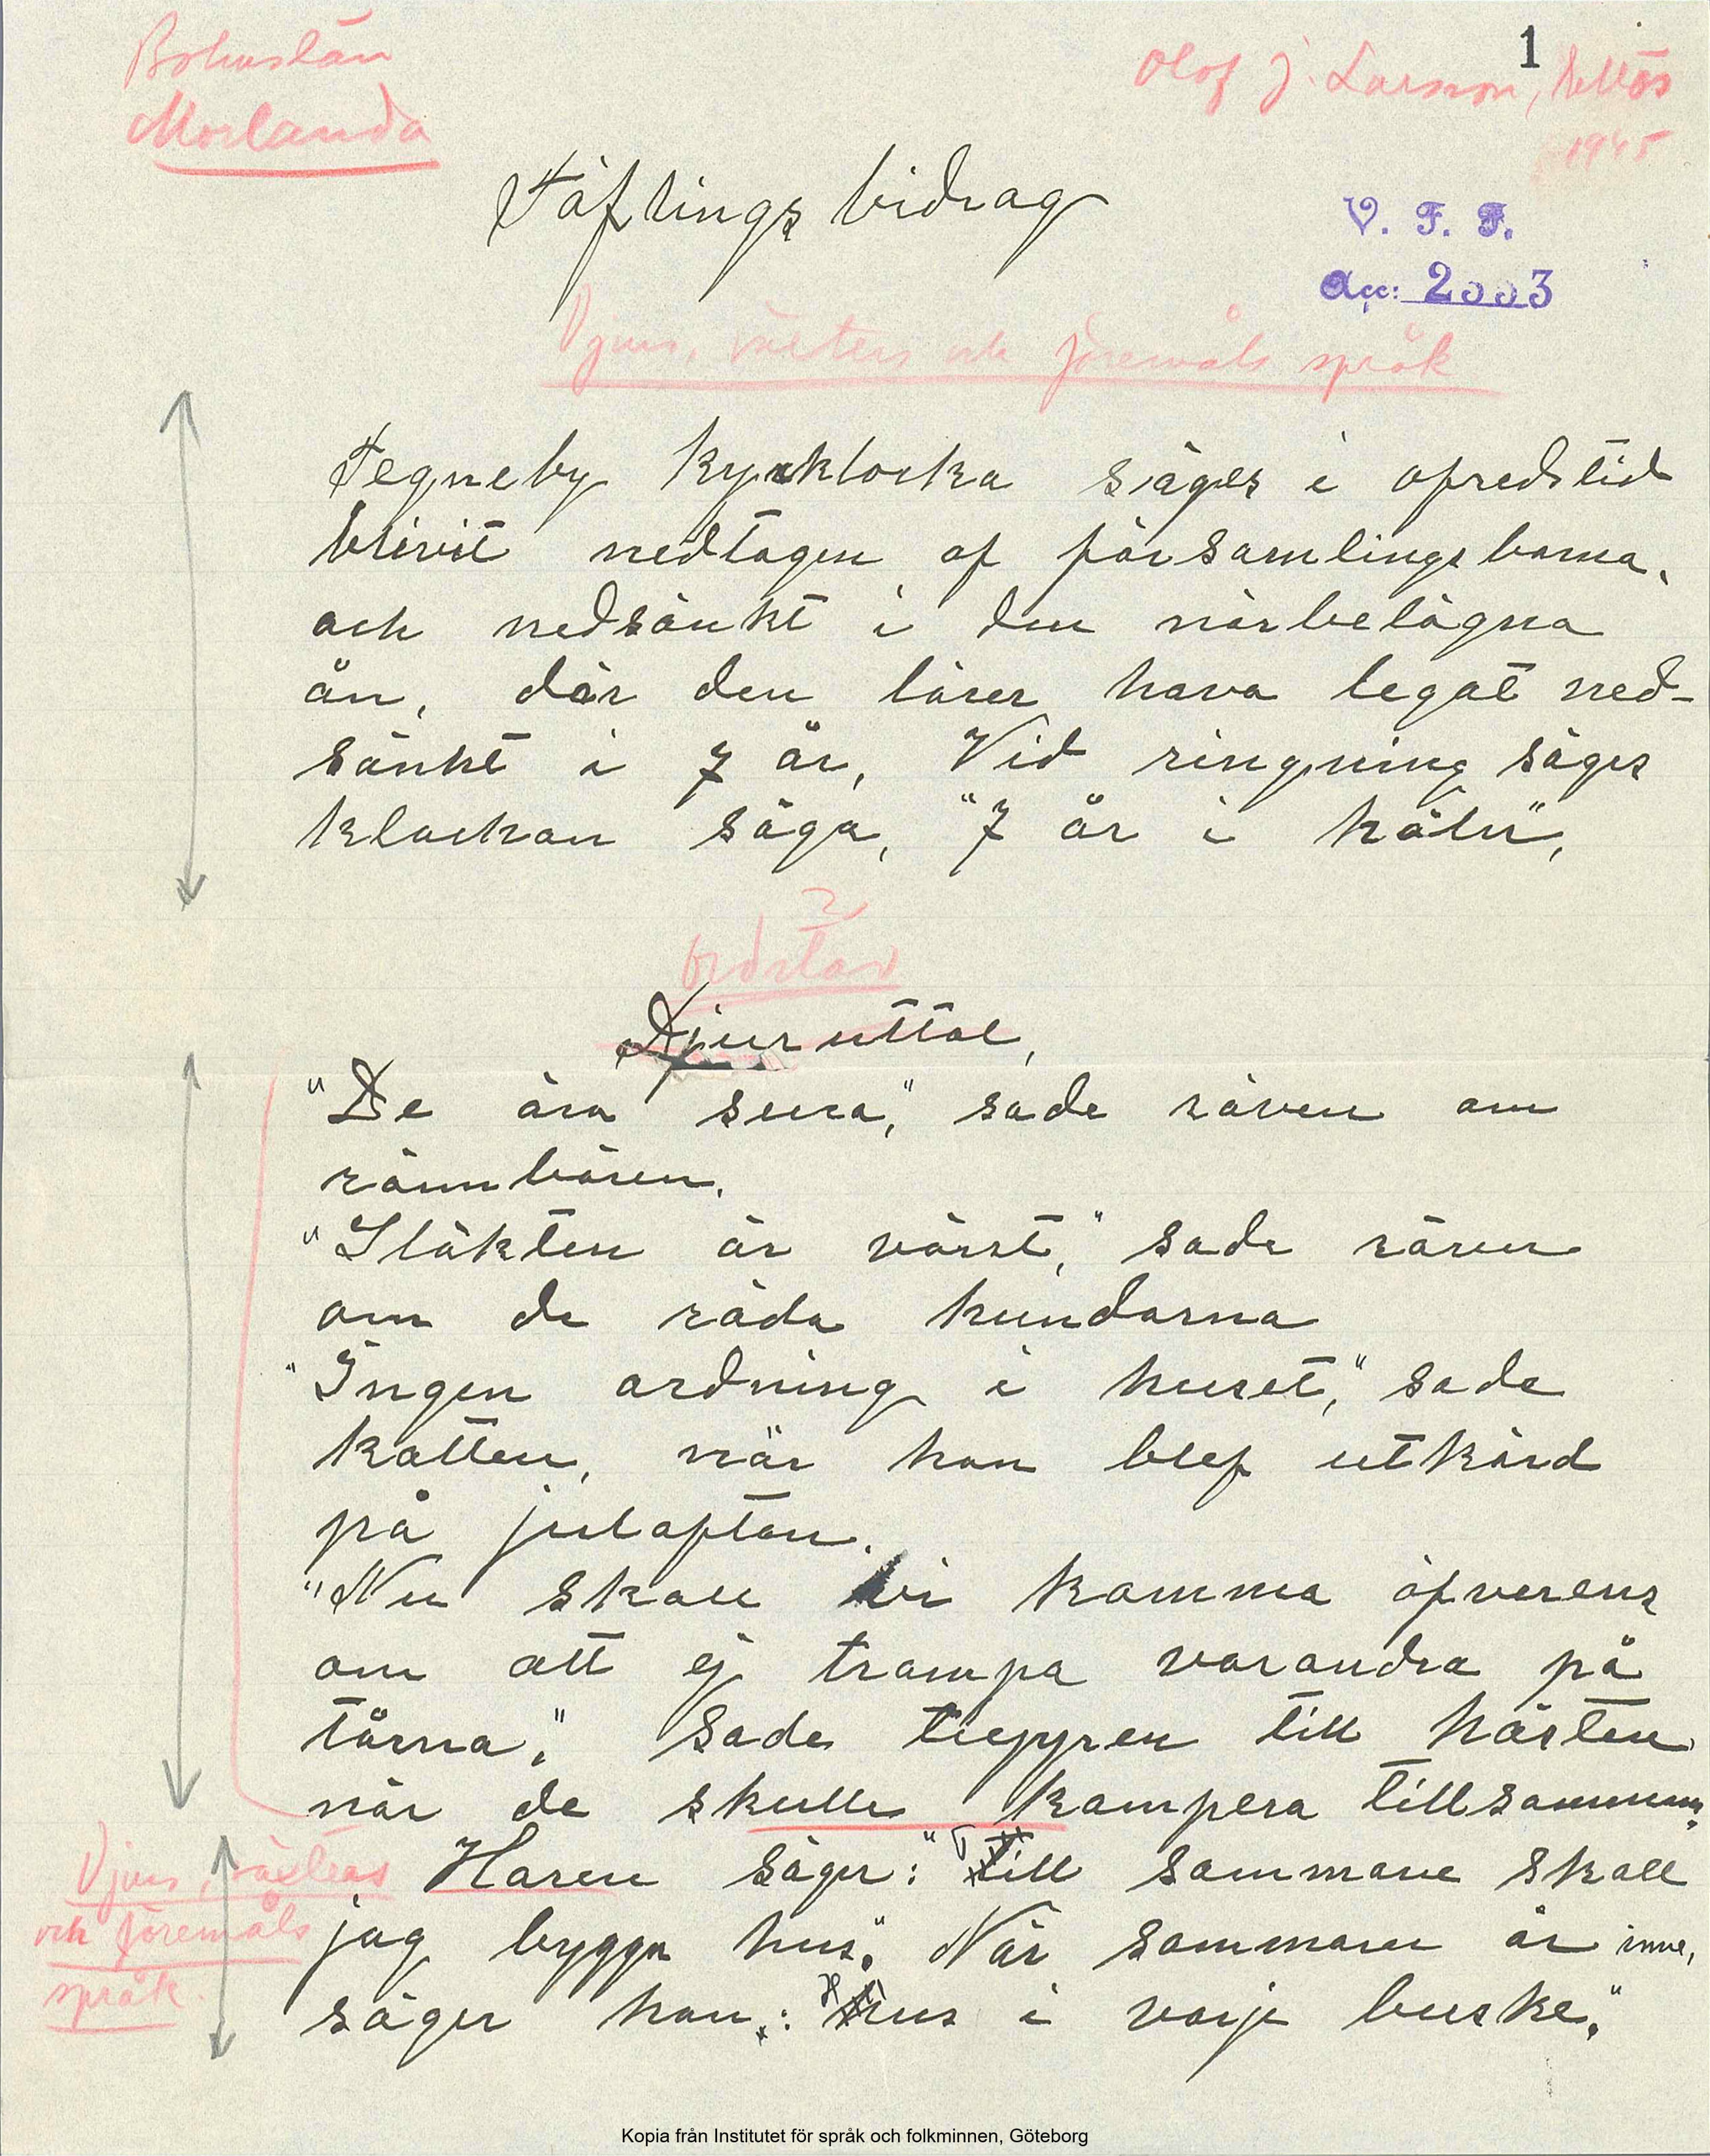 1
Bohuslän
Morlanda
Olof J. Larsson,
1945
Täflingsbidrag
V. F. F.
Acc: 2003
Djurs, växters och föremåls språk
Tegneby kyrkklocka säges i ofredstid
blivit nedtagen af församlingsborna,
och nedsänkt i den närbelägna
ån, där den lärer hava legat ned-
sänkt i 7 år, Vid ringning säges
klockan säga, "7 år i höln",
ordstäv
Djuruttal,
"De äro sura," sade räven om
rönnbären.
"Släkten är värst," sade räven
om de röda hundarna
"Ingen ordning i huset," sade
katten, när han blef utkörd
på julafton.
"Nu skall vi komma öfverens
om att ej trampa varandra på
tårna," sade tuppen till hästen
när de skulle kampera tillsammans.
Djurs, växters
och föremåls
språk.
Haren säger: "Till sommaren skall
jag bygga hus". När sommaren är inne,
säger han: "Hus i varje buske."
Kopia från Institutet för språk och folkminnen, Göteborg